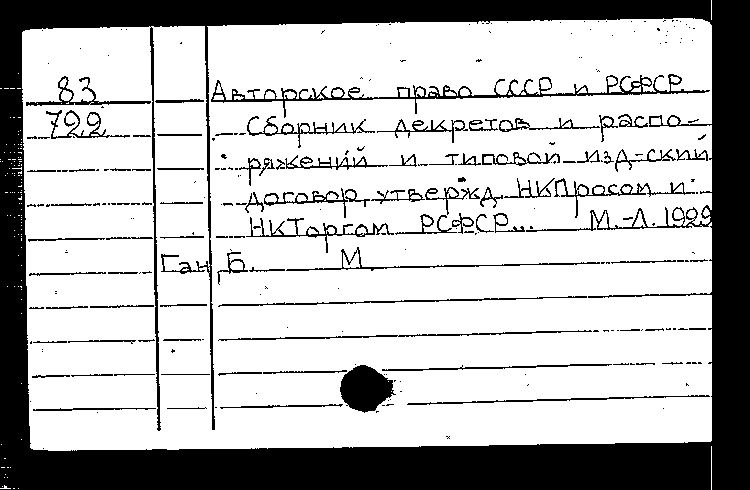 83
722
Авторское право СССР и РСФСР
Сборник декретов и распо-
ряжений и типовой изд-ский
договор, утвержд. НКПросом и
НКТоргом РСФСР... М.-Л. 1929
Ган, Б. М.